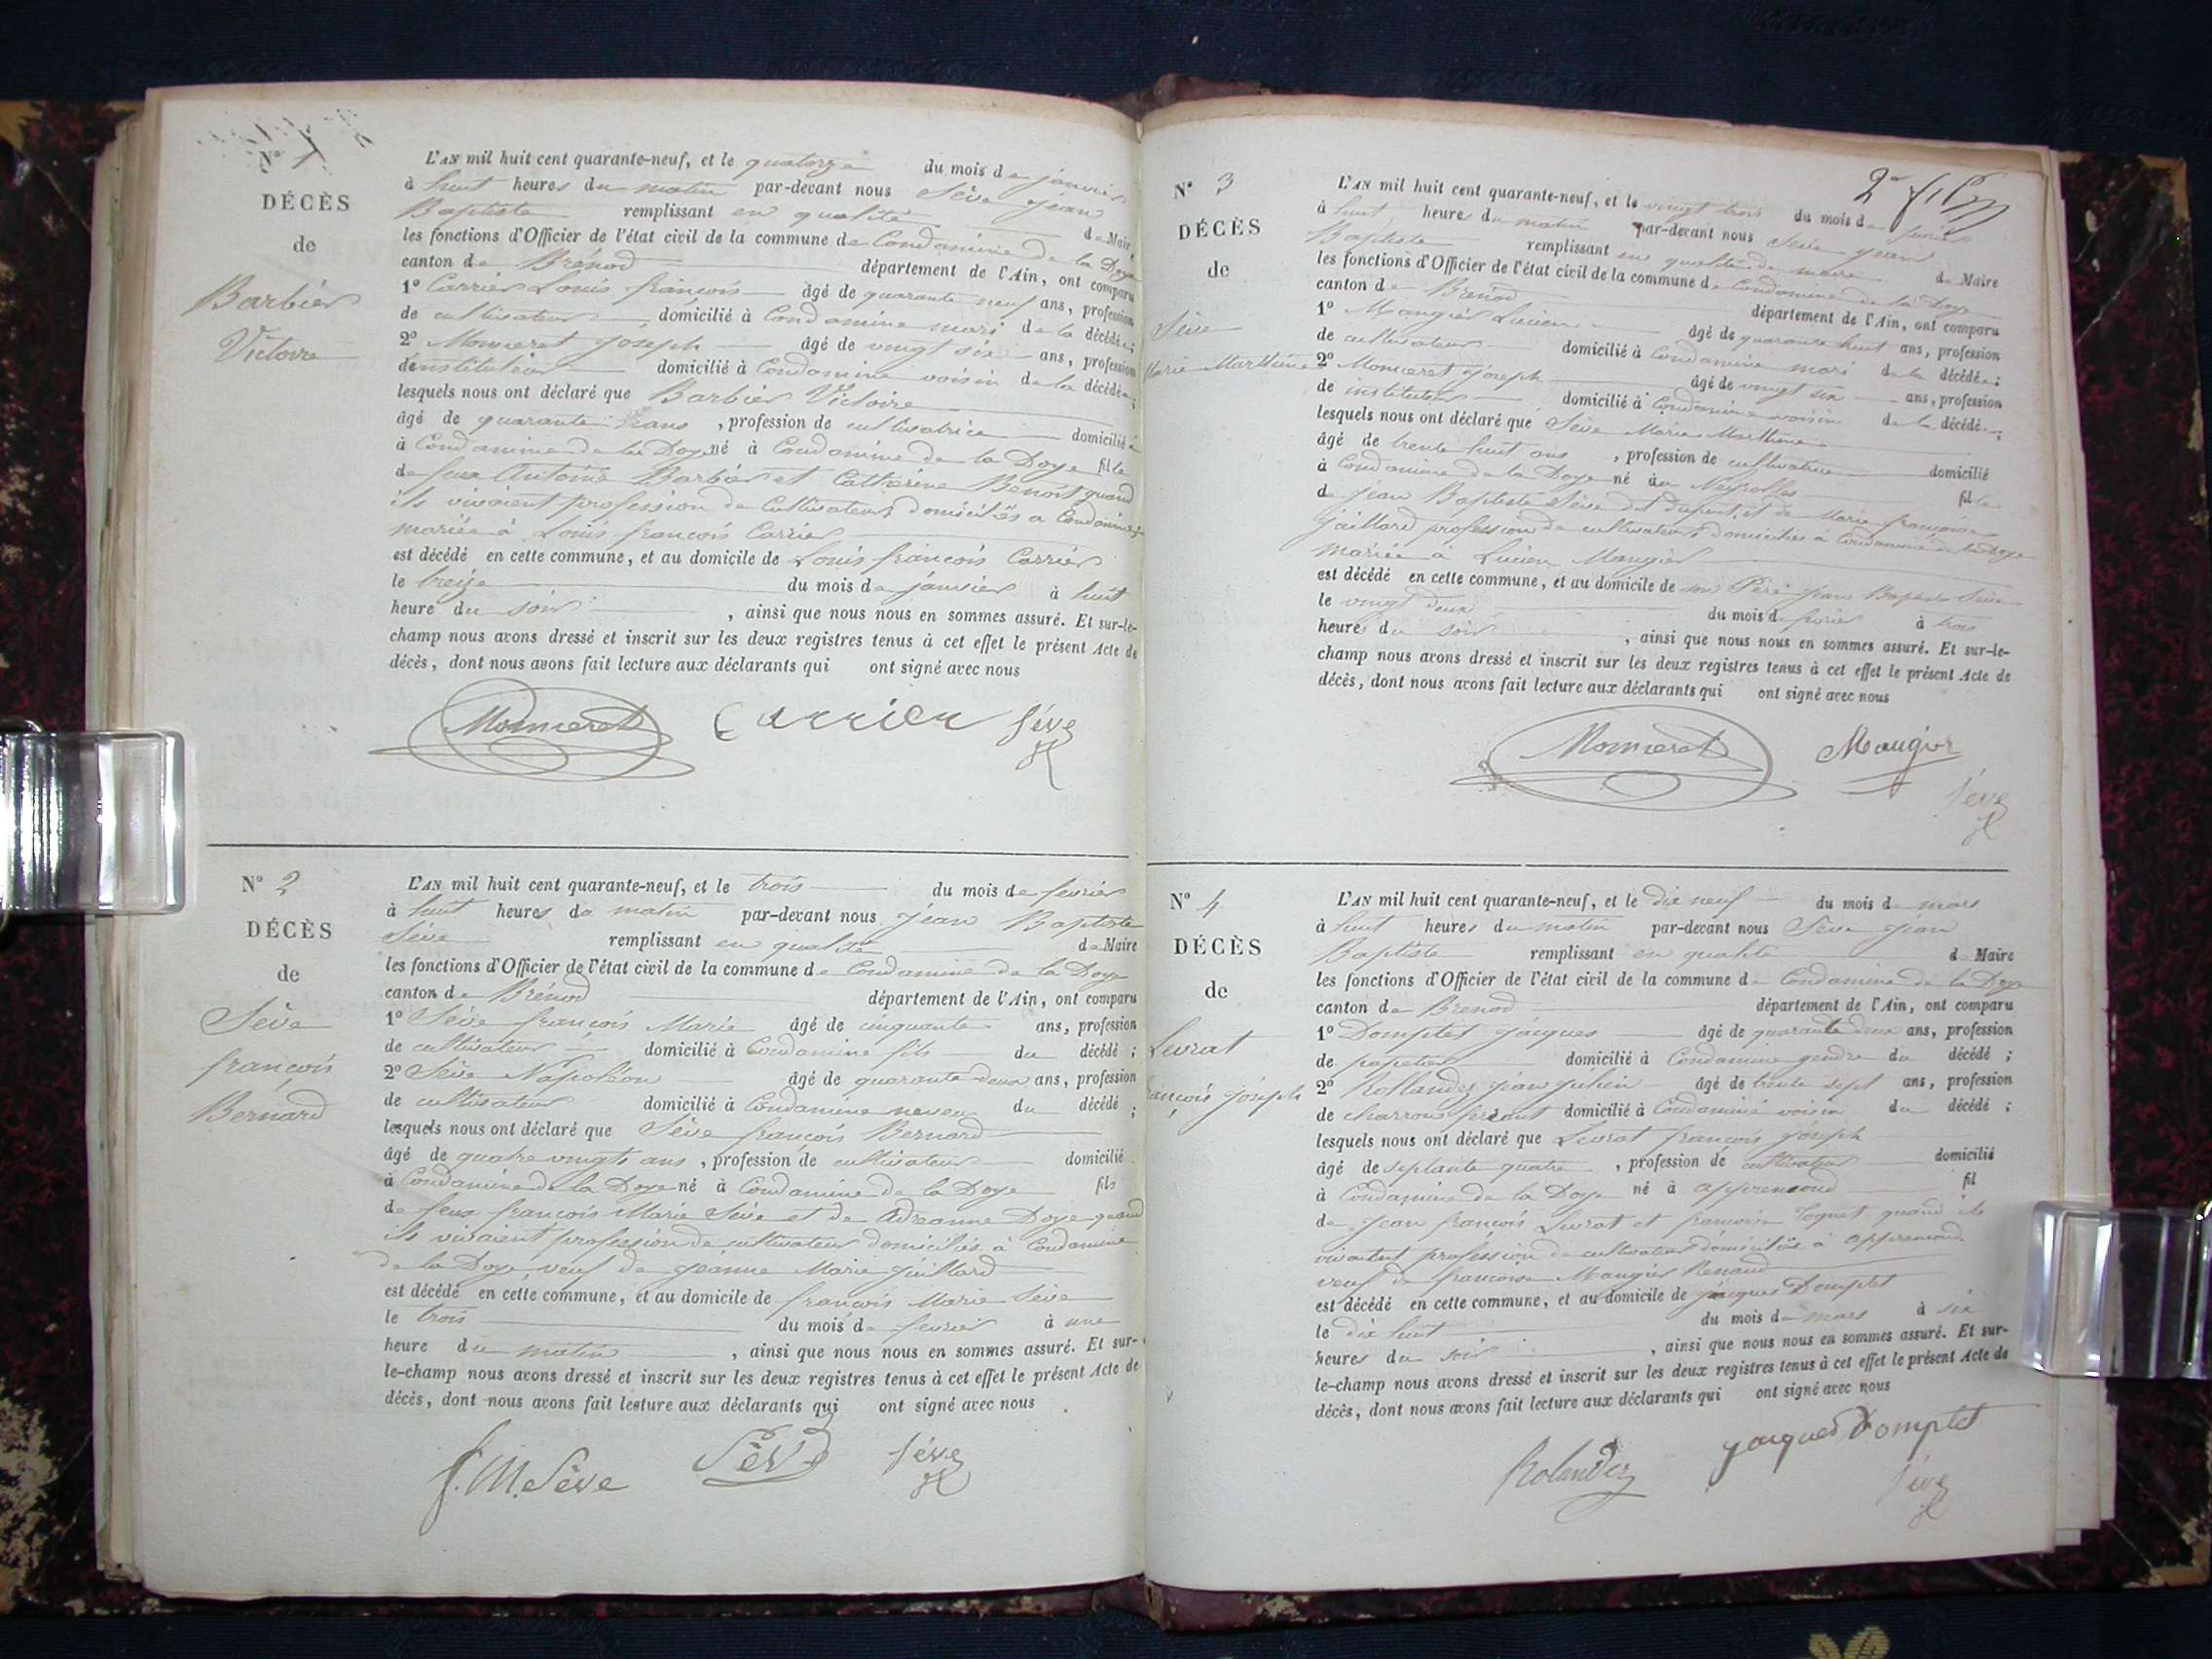 N° 1
DÉCÈS
de
Barbier
Victoire
L'AN mil huit cent quarante-neuf, et le quatorze du mois de janvier
à huit heures du matin par-devant nous Sève Jean
Baptiste remplissant en qualité de Maire
les fonctions d'Officier de l'état civil de la commune de Condamine de la Doye
canton de Brénod département de l'Ain, ont comparu
1° Carrier Louis françois âgé de quarante neuf ans, profession
de cultivateur domicilié à Condamine mari de la décédée;
2° Monneret Joseph âgé de vingt six ans, profession
d'instituteur domicilié à Condamine voisin de la décédée;
lesquels nous ont déclaré que Barbier Victoire
âgé de quarante ans, profession de cultivatrice domicilié
à Condamine de la Doye né à Condamine de la Doye fille
de feux Antoine Barbier et Catherine Benoit quand
ils vivaient profession de Cultivateurs domiciliés a Condamine
mariée à Louis françois Carrier
est décédé en cette commune, et au domicile de Louis françois Carrier
le treize du mois de janvier à huit
heure du soir, ainsi que nous nous en sommes assuré. Et sur-le-
champ nous avons dressé et inscrit sur les deux registres tenus à cet effet le présent Acte de
décès, dont nous avons fait lecture aux déclarants qui ont signé avec nous
Monneret Carrier Sève
N° 2
DÉCÈS
de
Sève
françois
Bernard
L'AN mil huit cent quarante-neuf, et le trois du mois de fevrier
à huit heures du matin par-devant nous Jean Baptiste
Sève remplissant en qualité de Maire
les fonctions d'Officier de l'état civil de la commune de Condamine de la Doye
canton de Brénod département de l'Ain, ont comparu
1° Sève françois Marie âgé de cinquante ans, profession
de cultivateur domicilié à Condamine fils du décédé;
2° Sève Napoléon âgé de quarante deux ans, profession
de cultivateur domicilié à Condamine neveu du décédé;
lesquels nous ont déclaré que Sève françois Bernard
âgé de quatre vingts ans, profession de cultivateur domicilié
à Condamine de la Doye né à Condamine de la Doye fils
de feux françois Marie Sève et de Adreanne Doye quand
ils vivaient profession de cultivateur domiciliés à Condamine
de la Doye, veuf de Jeanne Marie Juillard
est décédé en cette commune, et au domicile de françois Marie Sève
le trois du mois de fevrier à une
heure du matin, ainsi que nous nous en sommes assuré. Et sur-
le-champ nous avons dressé et inscrit sur les deux registres tenus à cet effet le présent Acte de
décès, dont nous avons fait lecture aux déclarants qui ont signé avec nous
f. M. Sève Sève Sève
2e
N° 3
DÉCÈS
de
Sève
Marie Marthine
L'AN mil huit cent quarante-neuf, et le vingt trois du mois de fevrier
à huit heures du matin par-devant nous Sève Jean
Baptiste remplissant en qualité de maire de Maire
les fonctions d'Officier de l'état civil de la commune de Condamine de la Doye
canton de Brenod département de l'Ain, ont comparu
1° Maugier Lucien âgé de quarante huit ans, profession
de cultivateur domicilié à Condamine mari de la décédée;
2° Monneret Joseph âgé de vingt six ans, profession
de instituteur domicilié à Condamine voisin de la décédée;
lesquels nous ont déclaré que Sève Marie Marthine
âgé de trente huit ans, profession de cultivatrice domicilié
à Condamine de la Doye né au Neyrolles fille
de Jean Baptiste Sève dit dupont et de Marie françoise
Jaillard profession de cultivateurs domiciliés à Condamine de la Doye
mariée à Lucien Maugier
est décédé en cette commune, et au domicile de son Père Jean Baptiste Sève
le vingt deux du mois de fevrier à trois
heures du soir, ainsi que nous nous en sommes assuré. Et sur-le-
champ nous avons dressé et inscrit sur les deux registres tenus à cet effet le présent Acte de
décès, dont nous avons fait lecture aux déclarants qui ont signé avec nous
Monneret Maugier
Sève
N° 4
DÉCÈS
de
Levrat
françois Joseph
L'AN mil huit cent quarante-neuf, et le dix neuf du mois de mars
à huit heures du matin par-devant nous Sève Jean
Baptiste remplissant en qualité d Maire
les fonctions d'Officier de l'état civil de la commune de Condamine de la Doye
canton de Brenod département de l'Ain, ont comparu
1° Domptet Jacques âgé de quarante deux ans, profession
de papetier domicilié à Condamine gendre du décédé;
2° Rollandez Jean Julien âgé de trente sept ans, profession
de charron domicilié à Condamine voisin du décédé;
lesquels nous ont déclaré que Levrat françois Joseph
âgé de septante quatre, profession de cultivateur domicilié
à Condamine de la Doye né à appremond fil
de Jean françois Levrat et françoise quand ils
vivaient profession de cultivateur domiciliés à appremond
veuf de françoise Maugier Renaud
est décédé en cette commune, et au domicile de Jacques Domptet
le dix huit du mois de mars à six
heures du soir, ainsi que nous nous en sommes assuré. Et sur-
le-champ nous avons dressé et inscrit sur les deux registres tenus à cet effet le présent Acte de
décès, dont nous avons fait lecture aux déclarants qui ont signé avec nous
Rolandez Jacques Domptet
Sève